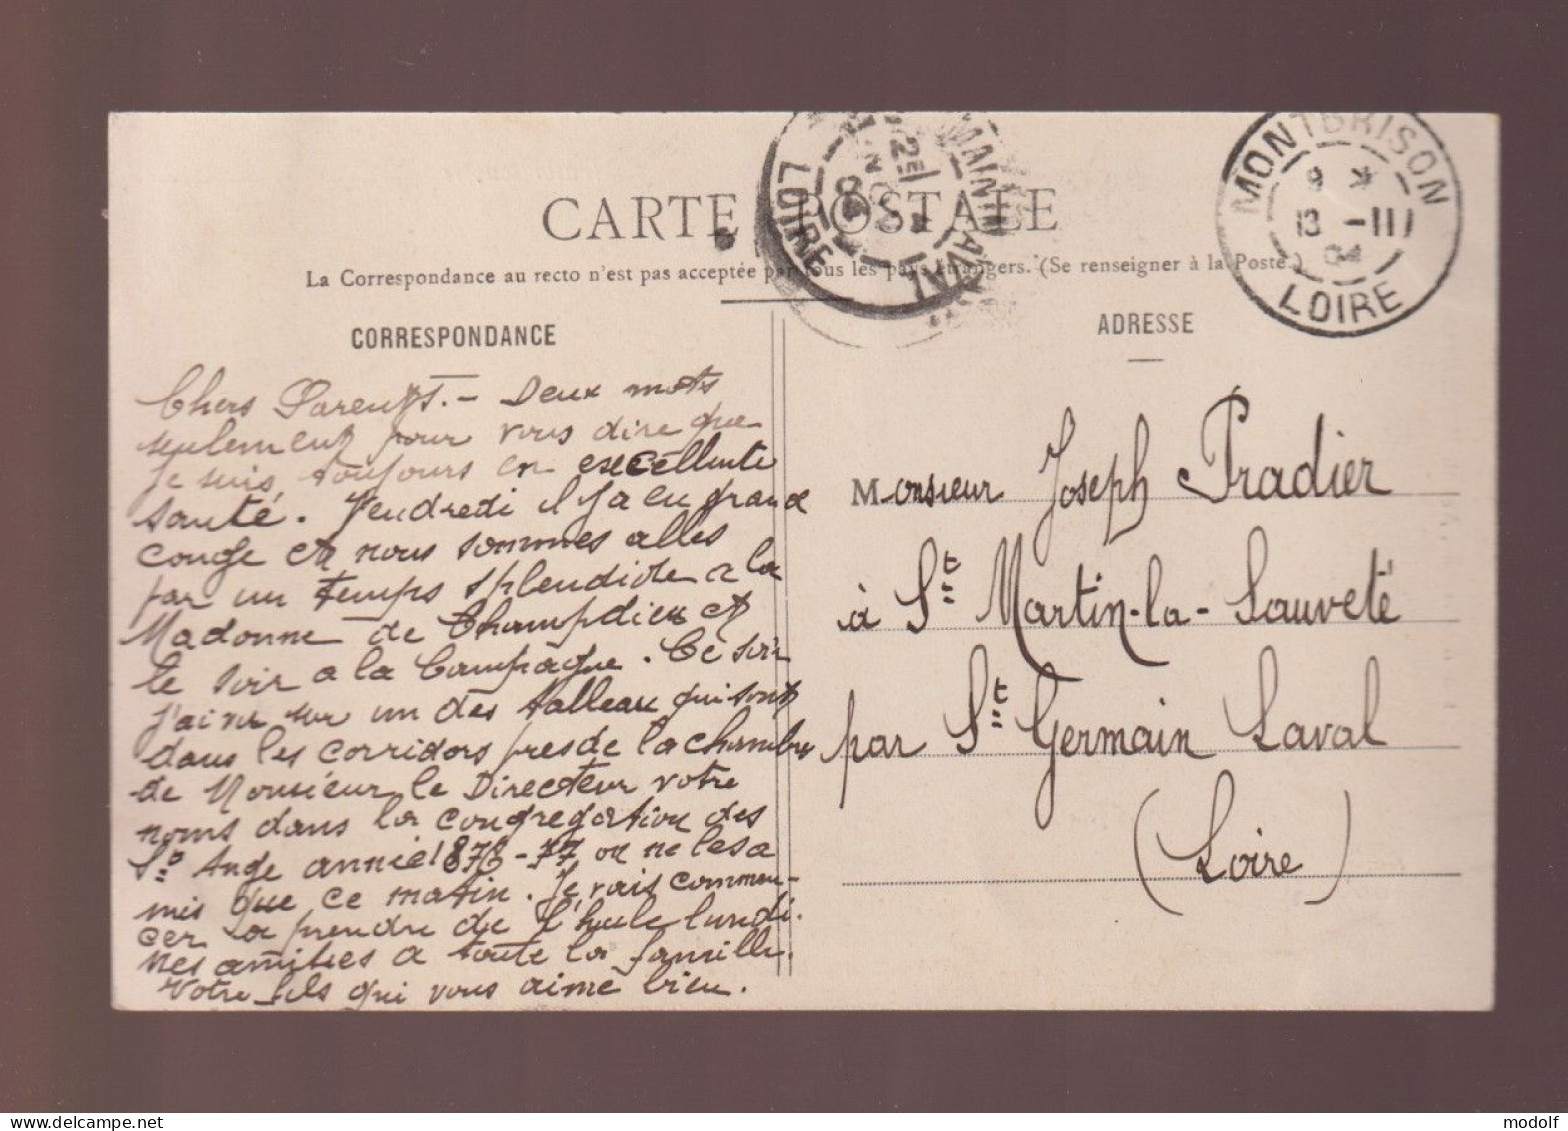 CARTE POSTALE
La Correspondance au recto n'est pas acceptée par tous les pays étrangers. (Se renseigner à la Poste.)
CORRESPONDANCE
Chers Parents. - Deux mots
seulement pour vous dire que
je suis toujours en excellente
santé. Vendredi il y a eu grand
congé et nous sommes alles
par un temps splendide a la
Madonne de Champdieu et
le soir a la Campagne. Ce soir
j'ai vu sur un des tableau qui sont
dans les corridors pres de la chambre
de Monsieur le Directeur votre
noms dans la congregation des
Sts Ange année 1876-77, on ne les a
mis que ce matin. Je vais commen-
cer a prendre de l'huile lundi.
Mes amities a toute la famille.
Votre fils qui vous aime bien.
ADRESSE
Monsieur Joseph Pradier
à St Martin-la-Sauveté
par St Germain Laval
(Loire)
MAIN LAVAL
LOIRE
MONTBRISON
13 -III
04
LOIRE
modolf